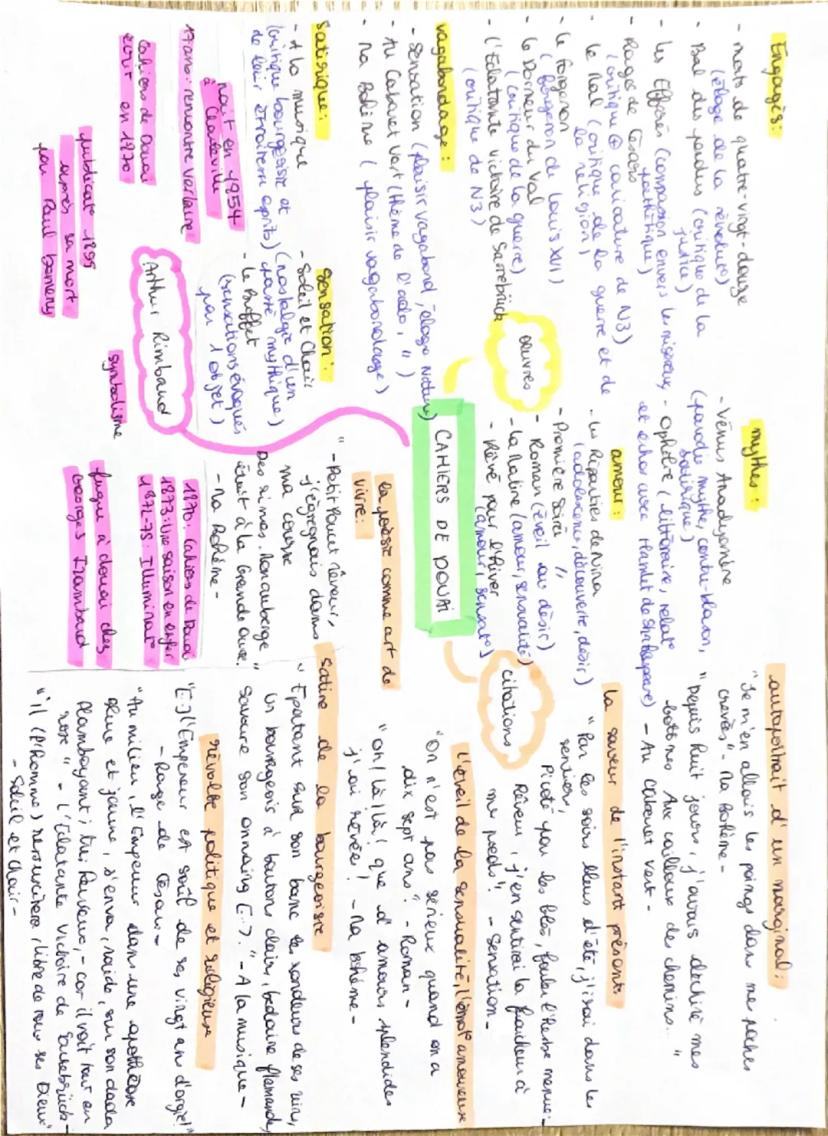 Engagés:
- morts de quatre-vingt-douze
(éloge de la révolut°)
- Bal des pendus (critique de la
justice)
- Les Effarés (compassion envers les miséreux,
pathétique)
- Rages de Césars
(critique ⊕ caricature de N3)
- le Mal (critique de la guerre et de
la religion)
- le forgeron
(forgeron de Louis XVI)
- le Dormeur du Val
(critique de la guerre)
- l'Eclatante victoire de Sarrebrück
(critique de N3)
vagabondage:
- Sensation (plaisir vagabond, éloge Nature)
- Au Cabaret Vert (thème de l'
- Ma Bohème (plaisir vagabondage)
satirique:
- A la musique
(critique bourgeoisie et
de leur étroitesse esprits)
sensation:
- Soleil et Chair
(nostalgie d'un
passé mythique)
- le Buffet
(sensations évoqués
par 1 objet)
œuvres
mythes:
- Vénus Anadyomène
(parodie mythe, contre-blason,
satirique)
- Ophélie (littéraire, relat°
et echo avec Hamlet de Shakespeare)
amour:
- les Réparties de Nina
(adolescence, découverte, désir)
- Première soirée "
- Roman (éveil au désir)
- la Maline (amour, sensualité)
- Rêvé pour l'hiver
(amour, sensat°)
CAHIERS DE DOUAI
Arthur Rimbaud
nait en 1954
à Charleville
17 ans: rencontre Verlaine
Cahiers de Douai
écrit en 1870
publicat° 1895
après sa mort
par Paul Demeny
symbolisme
1870: Cahiers de Douai
1873: Une saison en enfer
1872-75: Illuminat°
fugue à douai chez
Georges Izambard
citations
autoportrait d'un marginal:
"Je m'en allais les poings dans me poches
crevées" - Ma Bohème -
"Depuis huit jours, j'avais déchiré mes
bottines Aux cailloux de chemins..."
- Au Cabaret Vert -
la saveur de l'instant présent
"Par les soirs bleus d'été, j'irai dans les
sentiers,
Picoté par les blés, fouler l'herbe menue:
Rêveur, j'en sentirai la fraîcheur à
me pieds" - Sensation -
l'éveil de la sensualité, l'émoi amoureux
"On n'est pas sérieux quand on a
dix sept ans" - Roman -
"Oh! là là! que d'amours splendides
j'ai rêvées! - Ma bohème -
la poésie comme art de
vivre:
" - Petit Poucet rêveur,
j'égrenais dans
ma course
Des rimes. Mon auberge
était à la Grande ourse."
- Ma Bohème -
satire de la bourgeoisie
"Epatant sur son banc les rondeurs de ses reins,
Un bourgeois à boutons clairs, bedaine flamande,
Savoure son onnaing [...]" - A la musique -
révolte politique et religieuse
"[...] l'Empereur est soûl de se vingt ans d'orgie!"
- Rage de Césars -
"Au milieu, l'Empereur dans une apothéose
Bleue et jaune, s'en va, raide, sur son dada
Flamboyant; très heureux, - car il voit tout en
rose" - l'Eclatante Victoire de Sarrebrück -
"il (l'Homme) ressuscitera, libre de tous ses Dieux"
- Soleil et Chair -